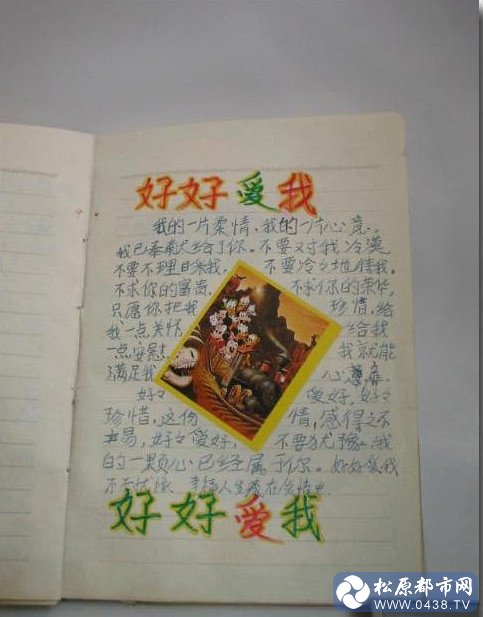 好好爱我
我的一片柔情、我的一片心意,
我已奉献给了你。不要对我冷漠
不要不理日采我。不要冷々地待我。
不求你的富贵, 不求你的荣华,
只愿你把我 珍惜,给
我一点关怀, 给我
一点安慰, 我就能
满足我 心意
好々 爱好,好々
珍惜,这份 情,感得之不
易,好々爱好, 不要犹豫,我
的一颗心已经属于你。好好爱我
不 幸福人生藏在
好好爱我
松原都市网
WWW.0438.TV